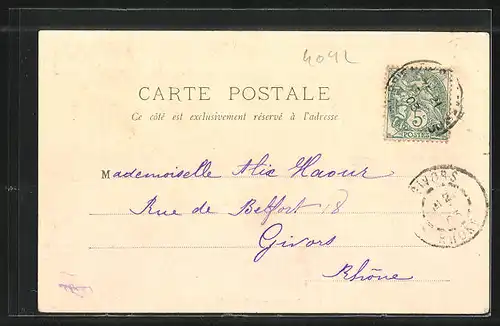 4042
CARTE POSTALE
Ce côté est exclusivement réservé à l'adresse
5
POSTES
Mademoiselle Alix Haour
Rue de Belfort 18
Givors
Rhône
GIVORS
RHONE